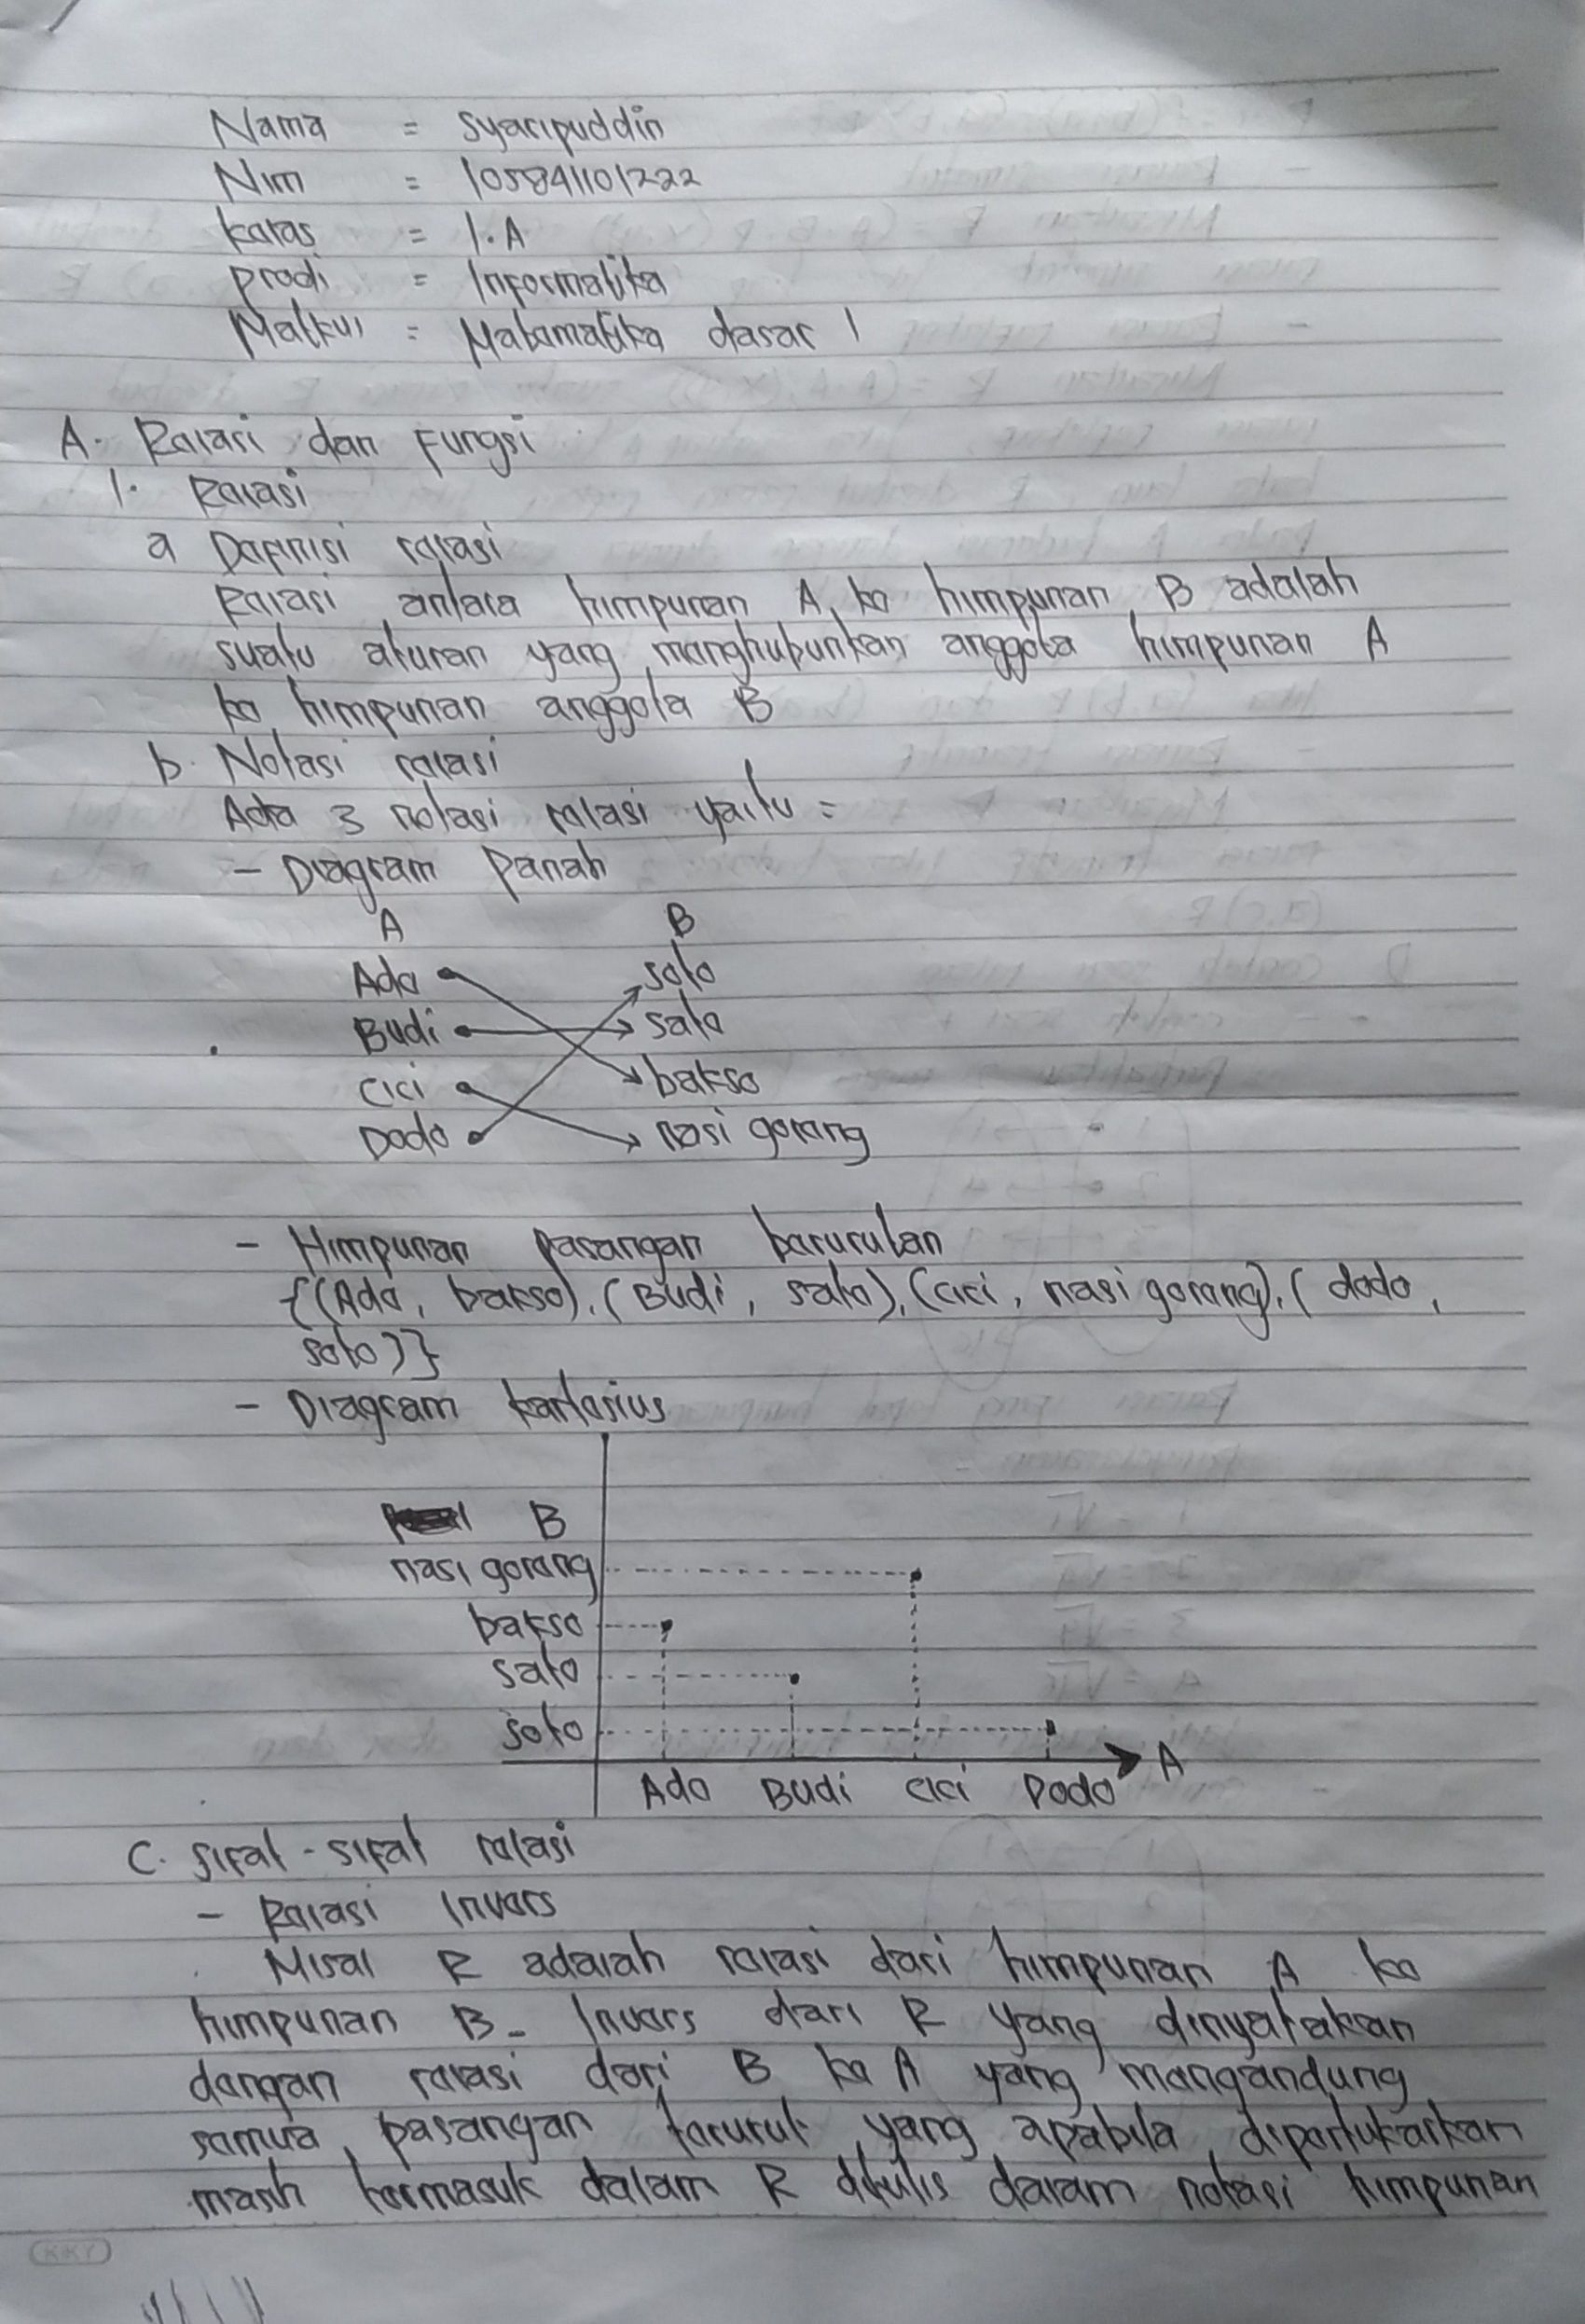 Nama = Syaripuddin
Nim = 105841101222
Kelas = 1.A
Prodi = Informatika
Matkul = Matematika dasar 1
A. Relasi dan Fungsi
1. Relasi
a Definisi relasi
Relasi antara himpunan A ke himpunan B adalah
suatu aturan yang menghubunkan anggota himpunan A
ke himpunan anggota B
b. Notasi relasi
Ada 3 notasi relasi yaitu =
- Diagram Panah
A B
Ade soto
Budi sate
Cici bakso
Dodo nasi goreng
- Himpunan pasangan berurutan
{(Ade, bakso), (Budi, sate), (cici, nasi goreng), (dodo,
soto)}
- Diagram kartesius
B
nasi goreng
bakso
sate
soto
A
Ade Budi Cici Dodo
C. Sifat-sifat relasi
- Relasi Invers
Misal R adalah relasi dari himpunan A ke
himpunan B. Invers dari R yang dinyatakan
dengan relasi dari B ke A yang mengandung
semua pasangan terurut yang apabila dipertukarkan
masih termasuk dalam R ditulis dalam notasi himpunan
KIKY